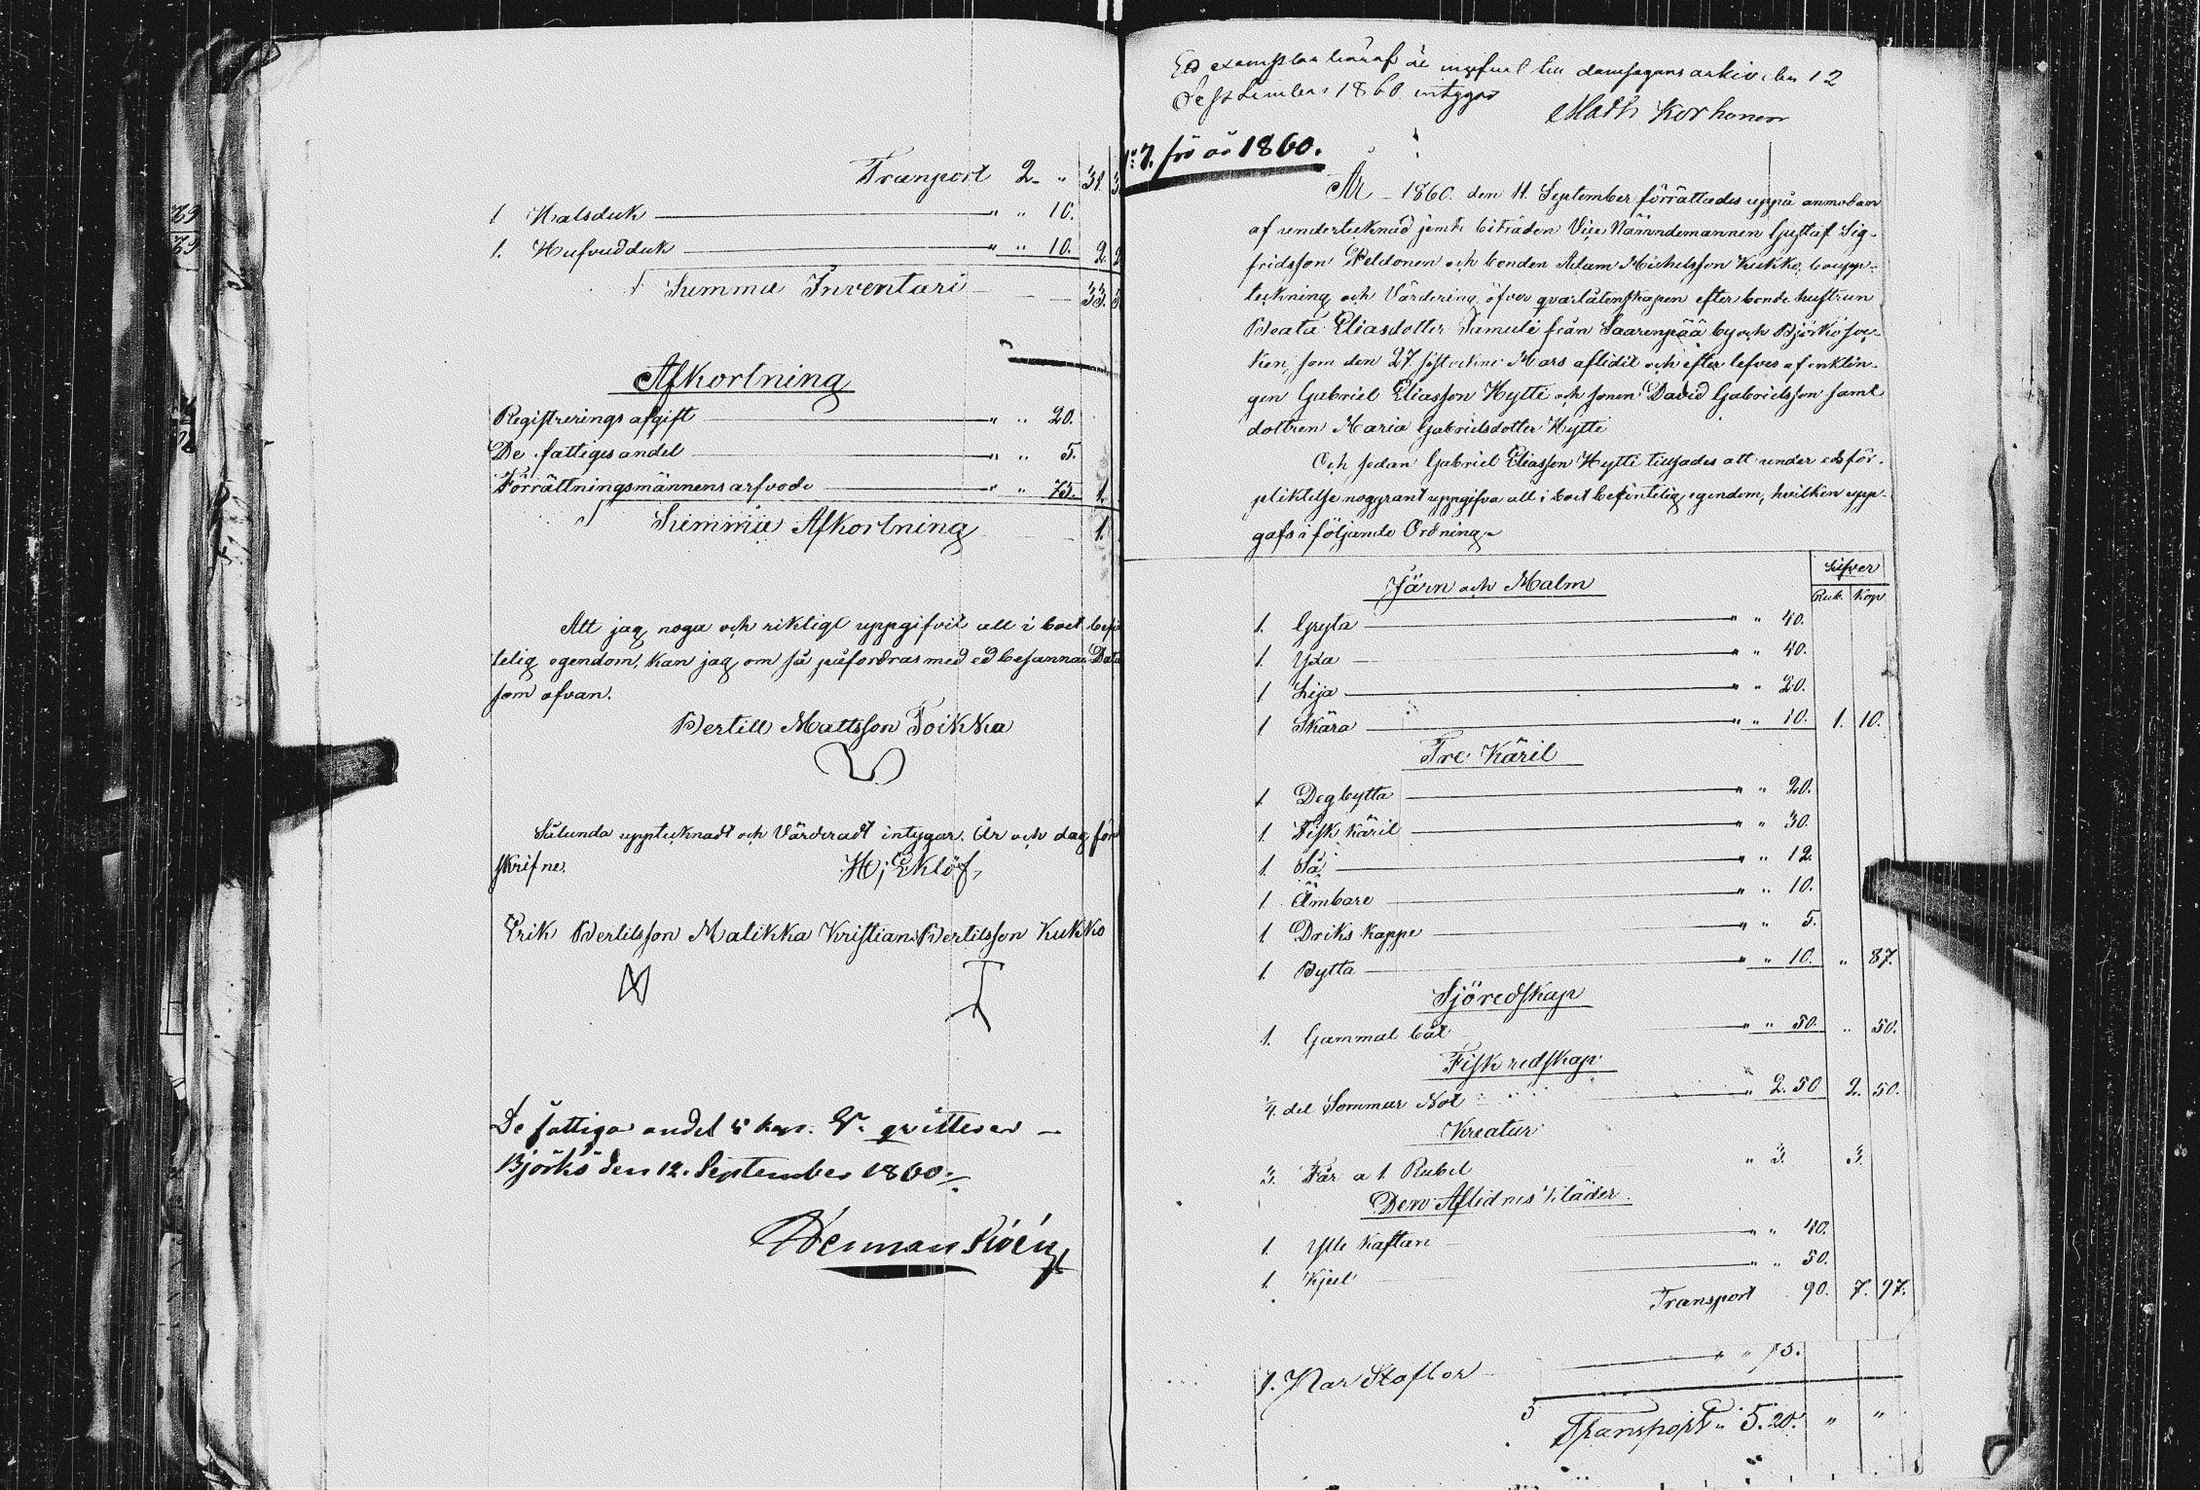 Transport 2. " 31. 3
1 Halsduk " " 10.
1. Hufvudduk " " 10. 2. 2
Summa Inventari 33. 3
Afkortning
Registrerings afgift " " 20.
De fattiges andel " " 5.
Förrättningsmännens arfvode " " 75. 1.
Summa Afkortning 1.
Att jag noga och riktigt uppgifvit all i boet befi
telig egendom, kan jag om så påfordras med ed besanna. Datu
som ofvan.
Bertill Mattsson Toikka
Sålunda upptecknadt och Värderadt intygar. År och dag för
skrifne.
H; Eklöf,
Erik Bertilsson Matikka Kristian Bertilsson Kukko
De fattiga andel 5 kop. Sr qvitteras
Björkö den 12. September 1860.
Herman
Ett exemplar häraf är till domsagans arkiv den 12
September 1860 intygas
Math Korhonen
No 7. för år 1860.
År 1860. den 11 September förrättades uppå anmodan
af undertecknad jemte biträden Vice Nämndemannen Gustaf Sig-
fridsson Peldonen och bonden Adam Michelsson Kukko, boupp-
teckning och Värdering öfver qvarlåtenskapen efter bonde hustrun
Beata Eliasdotter Samuli från Saarenpää by och Björkö soc-
ken, som den 27 sistledne Mars aflidit och efter lefves af enklin-
gen Gabriel Eliasson Hytti och sonen David Gabrielsson samt
dottren Maria Gabrielsdotter Hytti
Och sedan Gabriel Eliasson Hytti tillsades att under eds för-
pliktelse noggrant uppgifva all i boet befintelig egendom, hvilken upp-
gafs i följande Ordning.
Silfver
Järn och Malm Rub. Kop
1. Gryta " " 40.
1. Yxa " " 40.
1 Lija " " 20.
1 Skära " " 10. 1. 10.
Tre Käril
1. Degbytta " " 20.
1. Fisk käril " " 30.
1. Så " " 12.
1. Ämbare " " 10.
1 Driks kappe " " 5.
1. Bytta " " 10. " 87.
Sjöredskap
1. Gammal båt " " 50. " 50.
Fiskredskap
1/4 del Sommar Not " 2. 50 2. 50.
Kreatur
3. Får a 1. Rubel " 3. 3.
Den Aflidnes Kläder
1. Ylle Kaftan " " 40.
1. Kjul " " 50.
Transport 90. 7. 97.
1. Par Stoflor " " 75.
Transport " 5. 20. " "